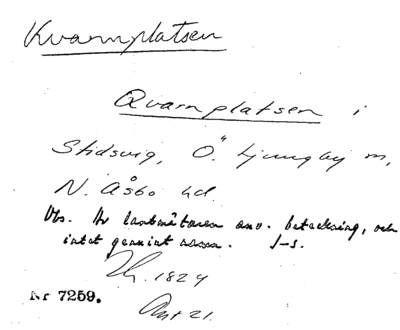 Kvarnplatsen
Qvarnplatsen i
Stidsvig, Ö. Ljungby sn,
N. Åsbo hd.
Obs. Av lantmätaren anv. beteckning, och
intet genuint namn. J-s.
1824
Nr 7259. Akt 21.